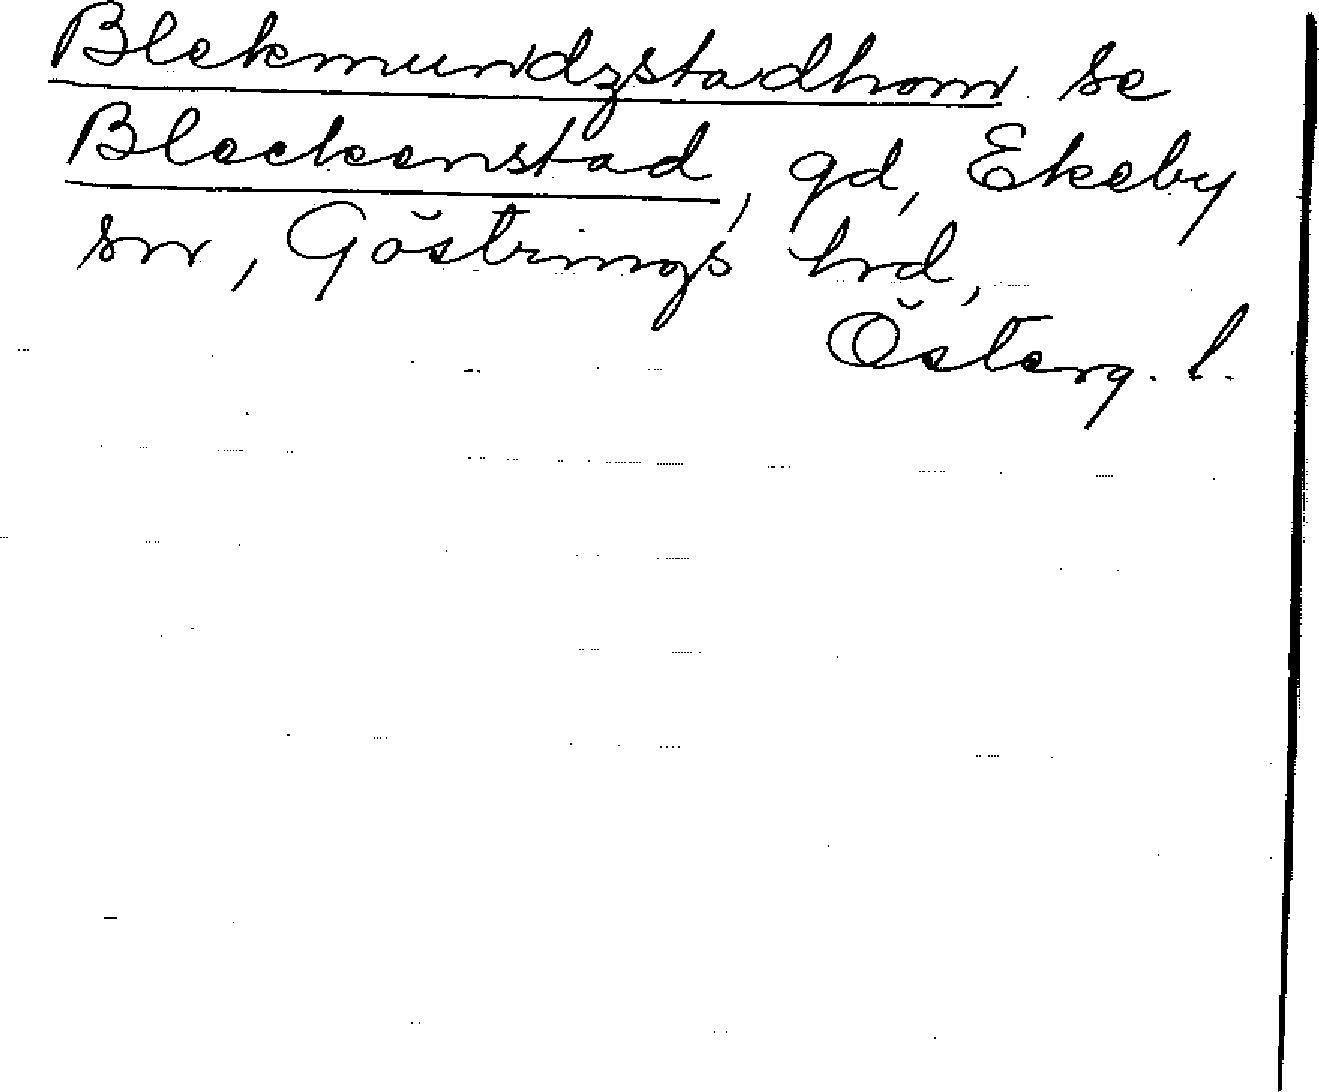 Blekmundzstadhom se
Bleckenstad, gd, Ekeby
sn, Göstrings hrd,
Österg. l.